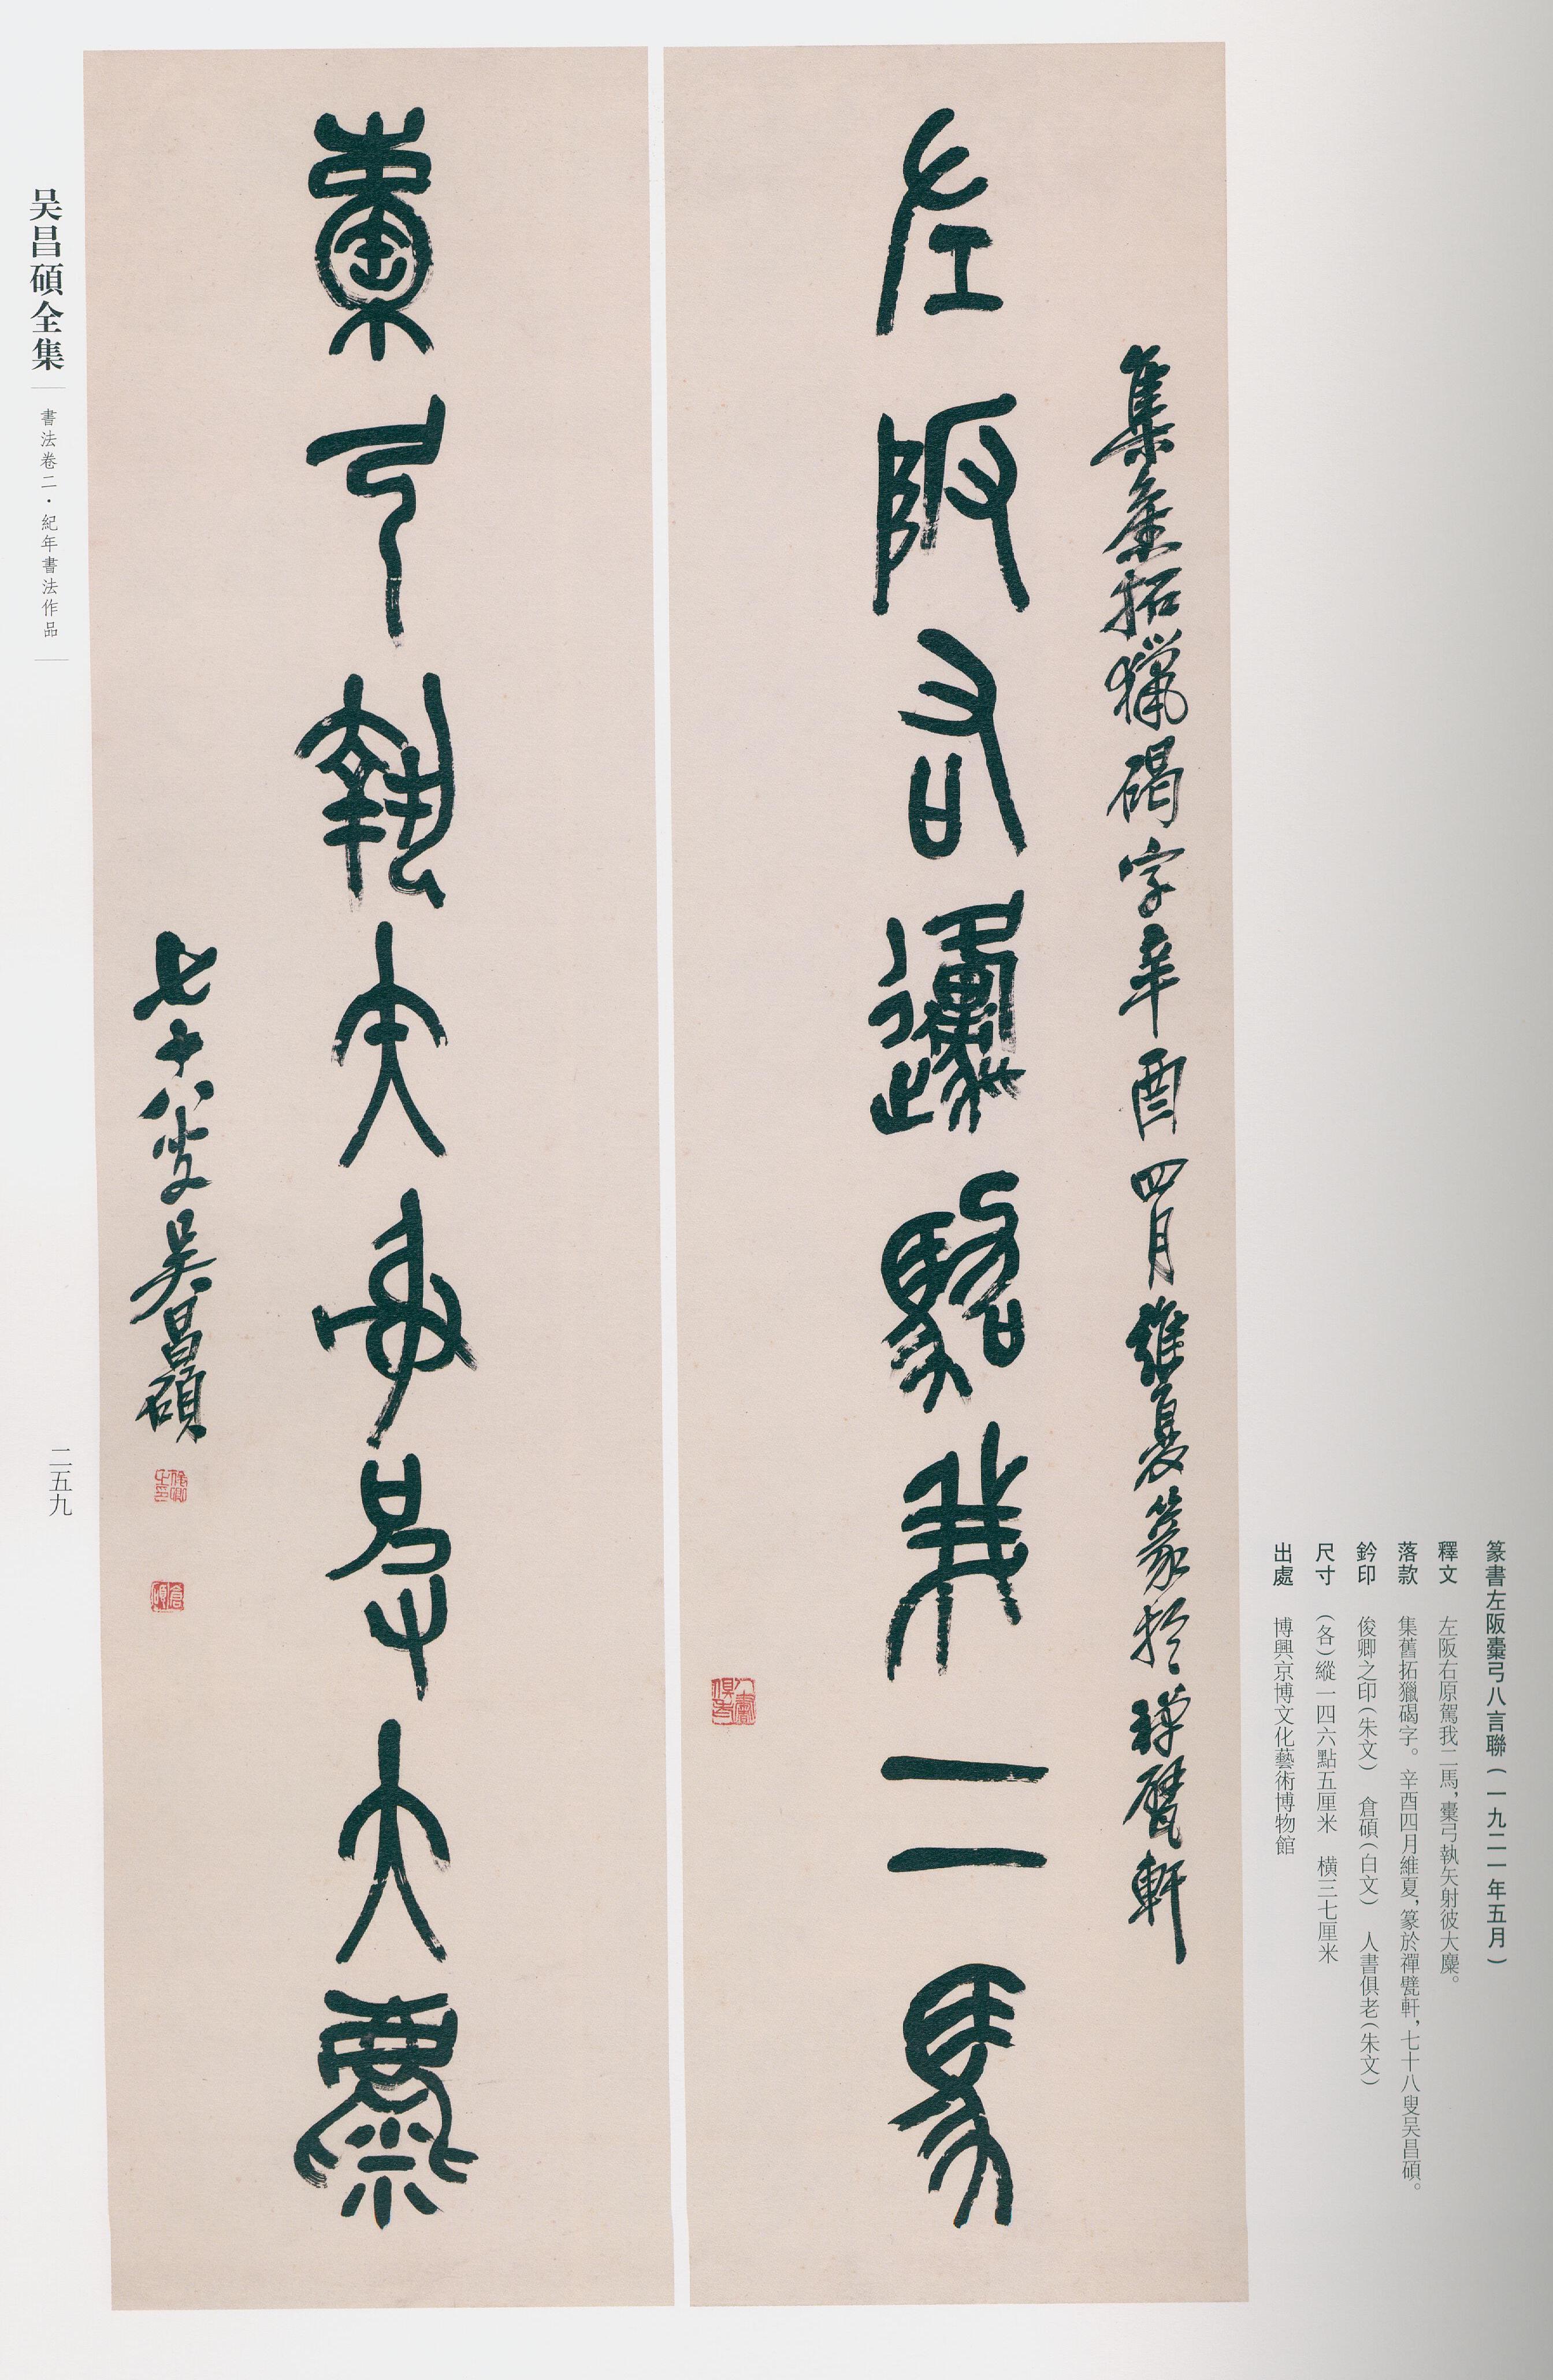 篆書左阪橐弓八言聯（一九二一年五月）
釋文　左阪右原駕我二馬，橐弓執矢射彼大麋。
落款　集舊拓獵碣字。辛酉四月維夏，篆於禪甓軒，七十八叟吴昌碩。
鈐印　俊卿之印（朱文）　倉碩（白文）　人書俱老（朱文）
尺寸　（各）縱一四六點五厘米　橫三七厘米
出處　博興京博文化藝術博物館
集舊拓獵碣字辛酉四月維夏篆於禪甓軒
左阪右原駕我二馬
人書俱老
橐弓執矢射彼大麋
七十八叟吴昌碩
俊卿之印
倉碩
吴昌碩全集
書法卷二·紀年書法作品
二五九